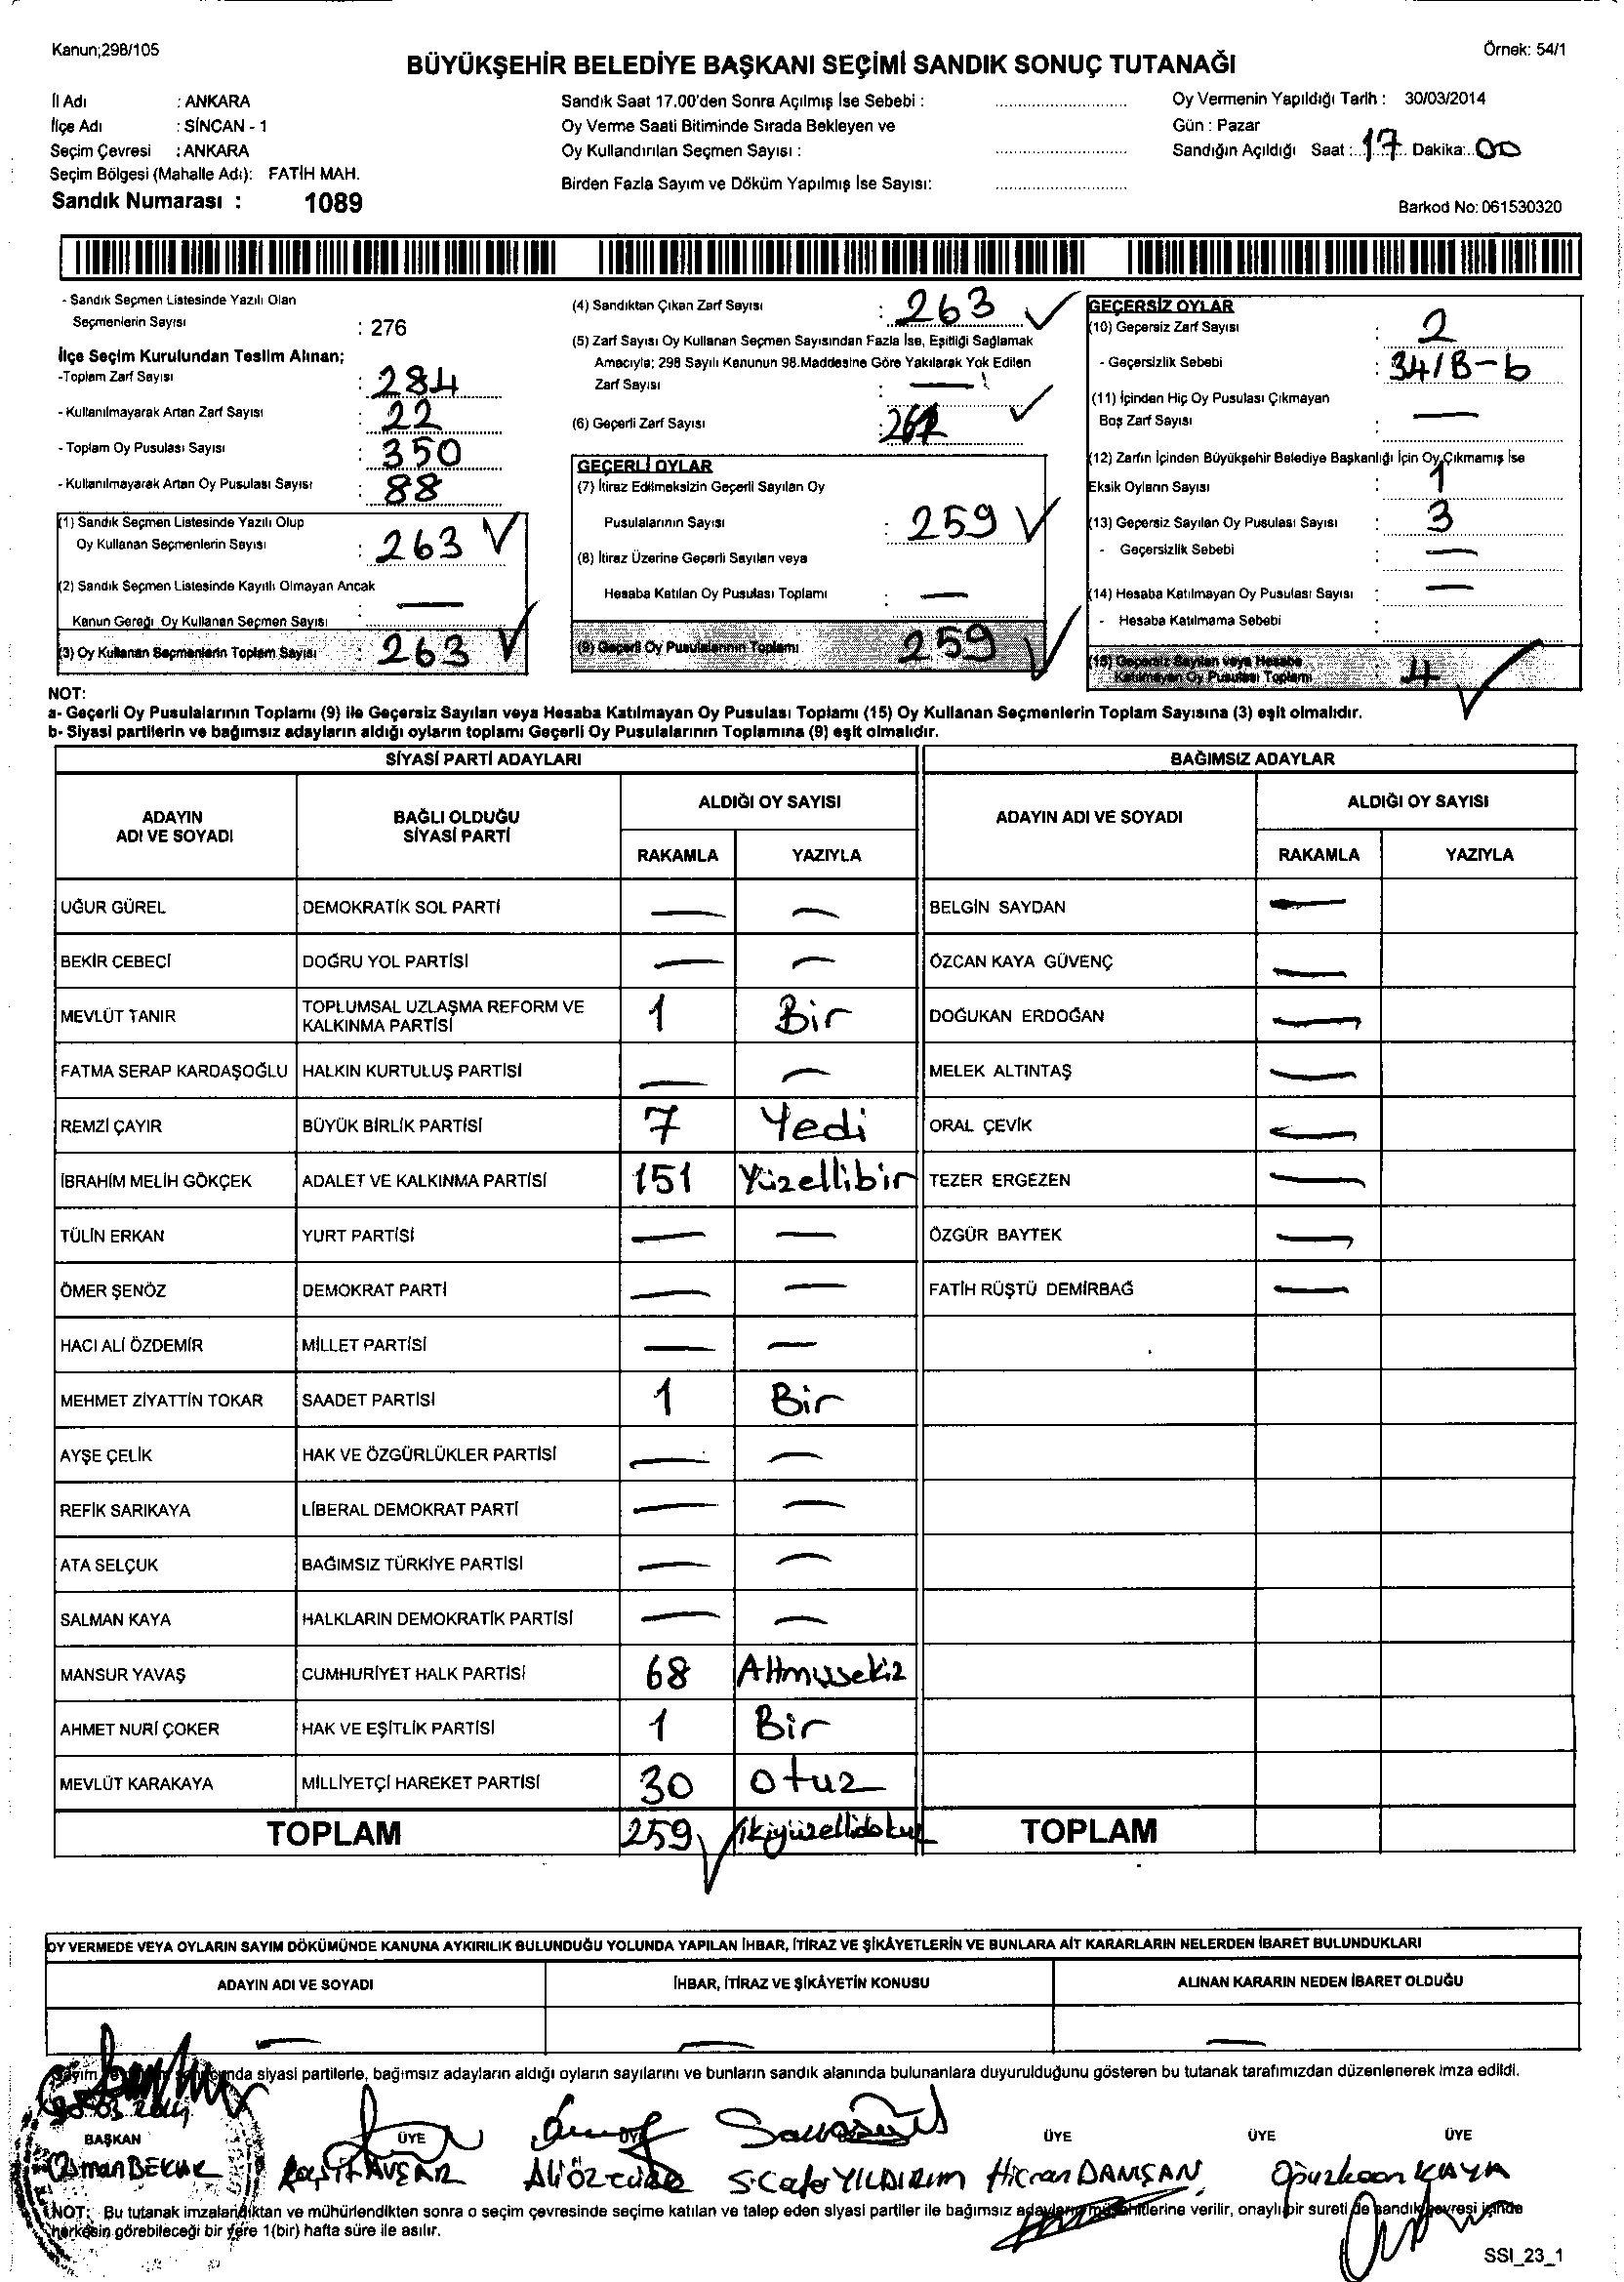 Kanun;298/105
Örnek: 54/1
BÜYÜKŞEHİR BELEDİYE BAŞKANI SEÇİMİ SANDIK SONUÇ TUTANAĞI
İl Adı : ANKARA
İlçe Adı : SİNCAN - 1
Seçim Çevresi : ANKARA
Seçim Bölgesi (Mahalle Adı): FATİH MAH.
Sandık Numarası : 1089
Sandık Saat 17.00'den Sonra Açılmış İse Sebebi :
Oy Verme Saati Bitiminde Sırada Bekleyen ve
Oy Kullandırılan Seçmen Sayısı :
Birden Fazla Sayım ve Döküm Yapılmış İse Sayısı:
Oy Vermenin Yapıldığı Tarih : 30/03/2014
Gün : Pazar
Sandığın Açıldığı Saat : 17 Dakika: 00
Barkod No: 061530320
- Sandık Seçmen Listesinde Yazılı Olan
Seçmenlerin Sayısı : 276
İlçe Seçim Kurulundan Teslim Alınan;
-Toplam Zarf Sayısı : 284
- Kullanılmayarak Artan Zarf Sayısı : 22
- Toplam Oy Pusulası Sayısı : 350
- Kullanılmayarak Artan Oy Pusulası Sayısı : 88
(1) Sandık Seçmen Listesinde Yazılı Olup
Oy Kullanan Seçmenlerin Sayısı : 263
(2) Sandık Seçmen Listesinde Kayıtlı Olmayan Ancak
Kanun Gereği Oy Kullanan Seçmen Sayısı : —
(3) Oy Kullanan Seçmenlerin Toplam Sayısı : 263
(4) Sandıktan Çıkan Zarf Sayısı : 263
(5) Zarf Sayısı Oy Kullanan Seçmen Sayısından Fazla İse, Eşitliği Sağlamak
Amacıyla; 298 Sayılı Kanunun 98.Maddesine Göre Yakılarak Yok Edilen
Zarf Sayısı : —
(6) Geçerli Zarf Sayısı :
GEÇERLİ OYLAR
(7) İtiraz Edilmeksizin Geçerli Sayılan Oy
Pusulalarının Sayısı : 259
(8) İtiraz Üzerine Geçerli Sayılan veya
Hesaba Katılan Oy Pusulası Toplamı : —
(9) Geçerli Oy Pusulalarının Toplamı 259
GEÇERSİZ OYLAR
(10) Geçersiz Zarf Sayısı : 2
- Geçersizlik Sebebi : 34/B-b
(11) İçinden Hiç Oy Pusulası Çıkmayan
Boş Zarf Sayısı : —
(12) Zarfın İçinden Büyükşehir Belediye Başkanlığı İçin Oy Çıkmamış İse
Eksik Oyların Sayısı : 1
(13) Geçersiz Sayılan Oy Pusulası Sayısı : 3
- Geçersizlik Sebebi : —
(14) Hesaba Katılmayan Oy Pusulası Sayısı : —
- Hesaba Katılmama Sebebi :
(15) Geçersiz Sayılan veya Hesaba
Katılmayan Oy Pusulası Toplamı : 4
NOT:
a- Geçerli Oy Pusulalarının Toplamı (9) ile Geçersiz Sayılan veya Hesaba Katılmayan Oy Pusulası Toplamı (15) Oy Kullanan Seçmenlerin Toplam Sayısına (3) eşit olmalıdır.
b- Siyasi partilerin ve bağımsız adayların aldığı oyların toplamı Geçerli Oy Pusulalarının Toplamına (9) eşit olmalıdır.
SİYASİ PARTİ ADAYLARI
BAĞIMSIZ ADAYLAR
ADAYIN ADI VE SOYADI
BAĞLI OLDUĞU SİYASİ PARTİ
ALDIĞI OY SAYISI
ADAYIN ADI VE SOYADI
ALDIĞI OY SAYISI
RAKAMLA YAZIYLA RAKAMLA YAZIYLA
UĞUR GÜREL DEMOKRATİK SOL PARTİ — — BELGİN SAYDAN —
BEKİR CEBECİ DOĞRU YOL PARTİSİ — — ÖZCAN KAYA GÜVENÇ —
MEVLÜT TANIR TOPLUMSAL UZLAŞMA REFORM VE KALKINMA PARTİSİ 1 Bir DOĞUKAN ERDOĞAN —
FATMA SERAP KARDAŞOĞLU HALKIN KURTULUŞ PARTİSİ — — MELEK ALTINTAŞ —
REMZİ ÇAYIR BÜYÜK BİRLİK PARTİSİ 7 Yedi ORAL ÇEVİK —
İBRAHİM MELİH GÖKÇEK ADALET VE KALKINMA PARTİSİ 151 Yüzellibir TEZER ERGEZEN —
TÜLİN ERKAN YURT PARTİSİ — — ÖZGÜR BAYTEK —
ÖMER ŞENÖZ DEMOKRAT PARTİ — — FATİH RÜŞTÜ DEMİRBAĞ —
HACI ALİ ÖZDEMİR MİLLET PARTİSİ — —
MEHMET ZİYATTİN TOKAR SAADET PARTİSİ 1 Bir
AYŞE ÇELİK HAK VE ÖZGÜRLÜKLER PARTİSİ — —
REFİK SARIKAYA LİBERAL DEMOKRAT PARTİ — —
ATA SELÇUK BAĞIMSIZ TÜRKİYE PARTİSİ — —
SALMAN KAYA HALKLARIN DEMOKRATİK PARTİSİ — —
MANSUR YAVAŞ CUMHURİYET HALK PARTİSİ 68 Altmışsekiz
AHMET NURİ ÇOKER HAK VE EŞİTLİK PARTİSİ 1 Bir
MEVLÜT KARAKAYA MİLLİYETÇİ HAREKET PARTİSİ 30 Otuz
TOPLAM 259 ikiyüzellidokuz TOPLAM
OY VERMEDE VEYA OYLARIN SAYIM DÖKÜMÜNDE KANUNA AYKIRILIK BULUNDUĞU YOLUNDA YAPILAN İHBAR, İTİRAZ VE ŞİKÂYETLERİN VE BUNLARA AİT KARARLARIN NELERDEN İBARET BULUNDUKLARI
ADAYIN ADI VE SOYADI İHBAR, İTİRAZ VE ŞİKÂYETİN KONUSU ALINAN KARARIN NEDEN İBARET OLDUĞU
— — —
siyasi partilerle, bağımsız adayların aldığı oyların sayılarını ve bunların sandık alanında bulunanlara duyurulduğunu gösteren bu tutanak tarafımızdan düzenlenerek imza edildi.
BAŞKAN ÜYE ÜYE ÜYE ÜYE
Ali Öztürk YILDIRIM Hicran Oğuzhan KAYA
NOT: Bu tutanak imzalandıktan ve mühürlendikten sonra o seçim çevresinde seçime katılan ve talep eden siyasi partiler ile bağımsız adayların müşahitlerine verilir, onaylı bir sureti de sandık çevresi içinde
herkesin görebileceği bir yere 1(bir) hafta süre ile asılır.
SSI_23_1